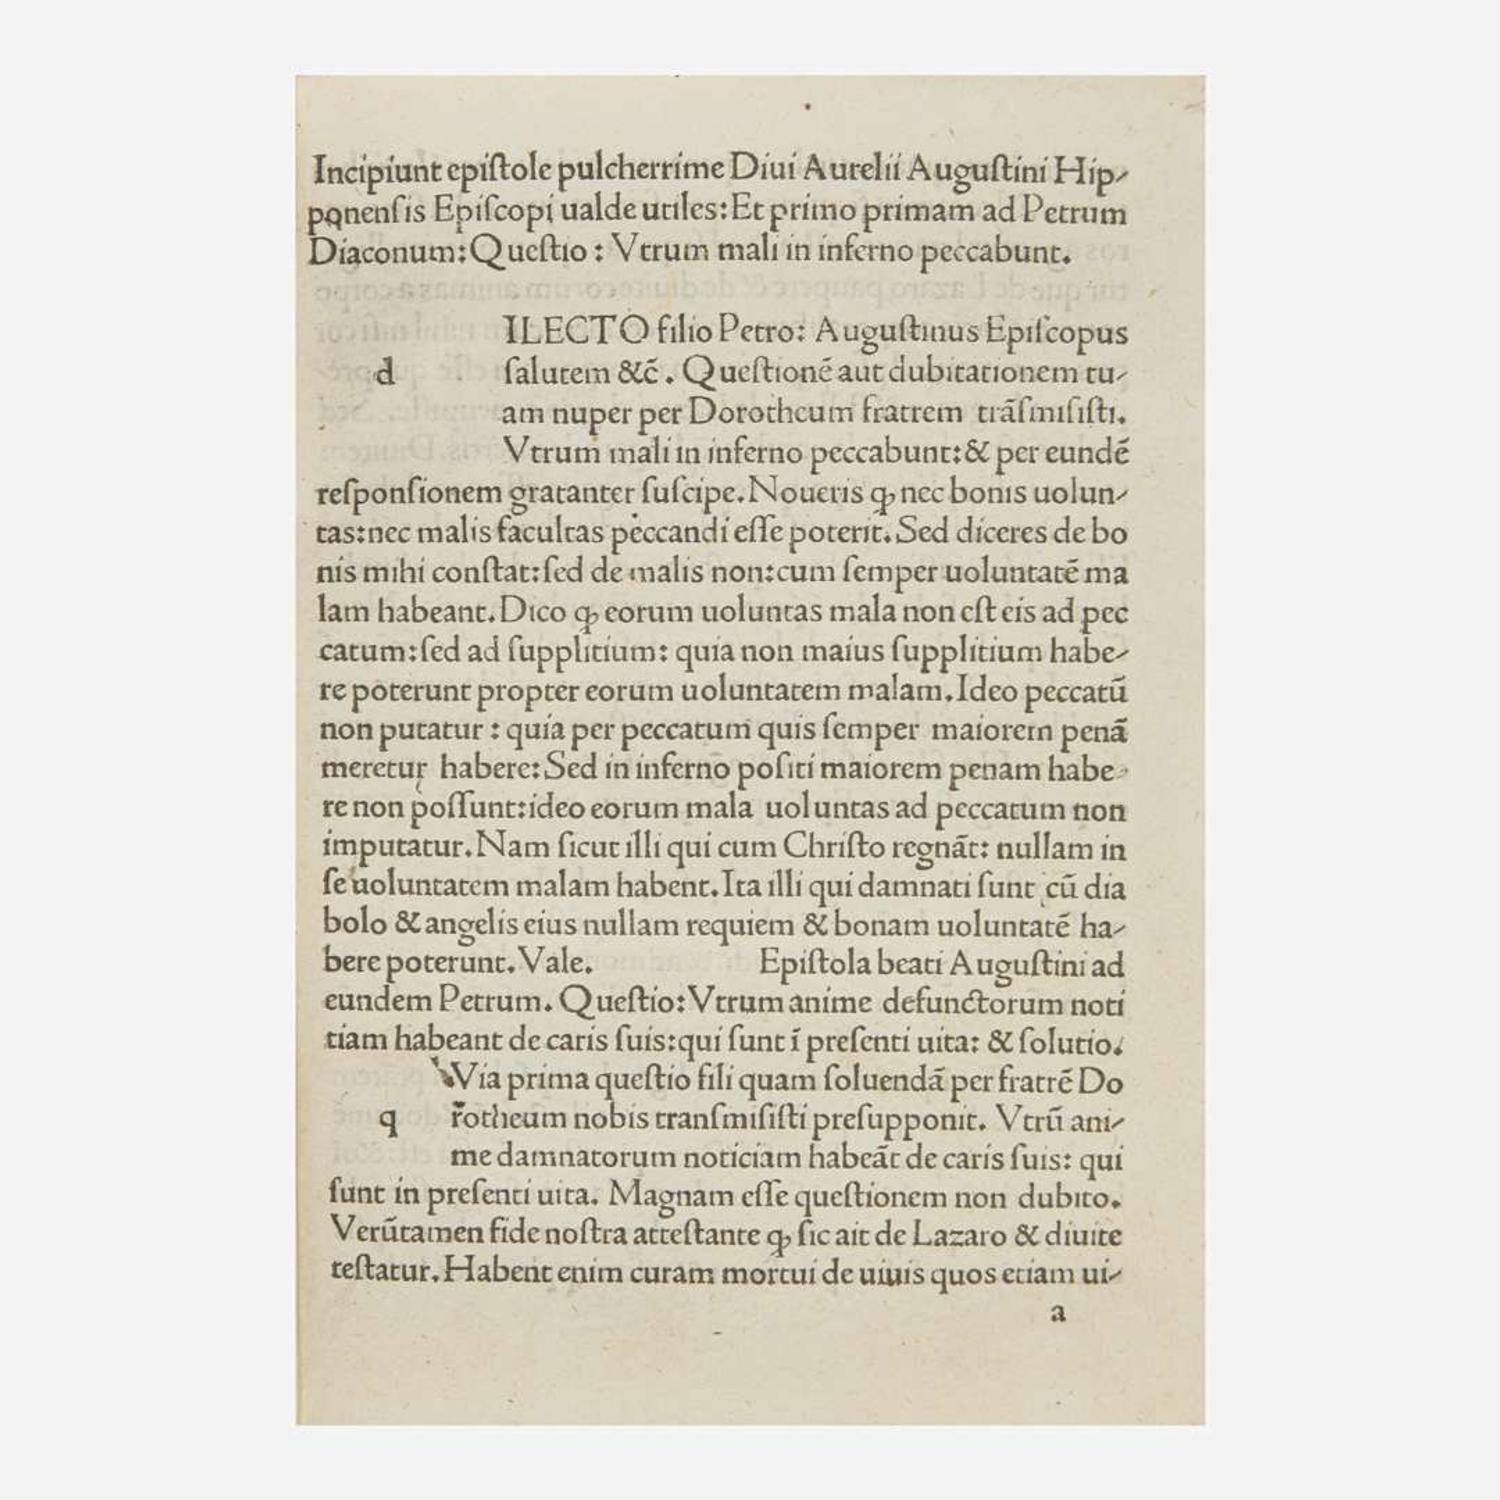 Incipiunt epiſtole pulcherrime Diui Aurelii Auguſtini Hip-
ponenſis Epiſcopi ualde utiles: Et primo primam ad Petrum
Diaconum: Queſtio: Vtrum mali in inferno peccabunt.
ILECTO filio Petro: Auguſtinus Epiſcopus
d ſalutem &c̄. Queſtionē aut dubitationem tu-
am nuper per Dorotheum fratrem trāſmiſiſti.
Vtrum mali in inferno peccabunt: & per eundē
reſponſionem gratanter ſuſcipe. Noueris ꝙ nec bonis uolun-
tas: nec malis facultas peccandi eſſe poterit. Sed diceres de bo
nis mihi conſtat: ſed de malis non: cum ſemper uoluntatē ma
lam habeant. Dico ꝙ eorum uoluntas mala non eſt eis ad pec
catum: ſed ad ſupplitium: quia non maius ſupplitium habe-
re poterunt propter eorum uoluntatem malam. Ideo peccatū
non putatur: quia per peccatum quis ſemper maiorem penā
meretur habere: Sed in inferno poſiti maiorem penam habe-
re non poſſunt: ideo eorum mala uoluntas ad peccatum non
imputatur. Nam ſicut illi qui cum Chriſto regnāt: nullam in
ſe uoluntatem malam habent. Ita illi qui damnati ſunt cū dia
bolo & angelis eius nullam requiem & bonam uoluntatē ha-
bere poterunt. Vale. Epiſtola beati Auguſtini ad
eundem Petrum. Queſtio: Vtrum anime defunctorum noti
tiam habeant de caris ſuis: qui ſunt ī preſenti uita: & ſolutio.
Via prima queſtio fili quam ſoluendā per fratrē Do
q rotheum nobis tranſmiſiſti preſupponit. Vtrū ani-
me damnatorum noticiam habeāt de caris ſuis: qui
ſunt in preſenti uita. Magnam eſſe queſtionem non dubito.
Verūtamen fide noſtra atteſtante ꝙ ſic ait de Lazaro & diuite
teſtatur. Habent enim curam mortui de uiuis quos etiam ui-
a